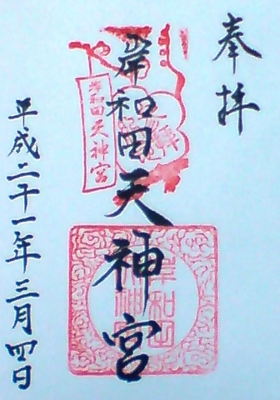 奉拝
岸和田天神宮
平成二十一年三月四日
岸和田天神宮
岸和田
天神宮